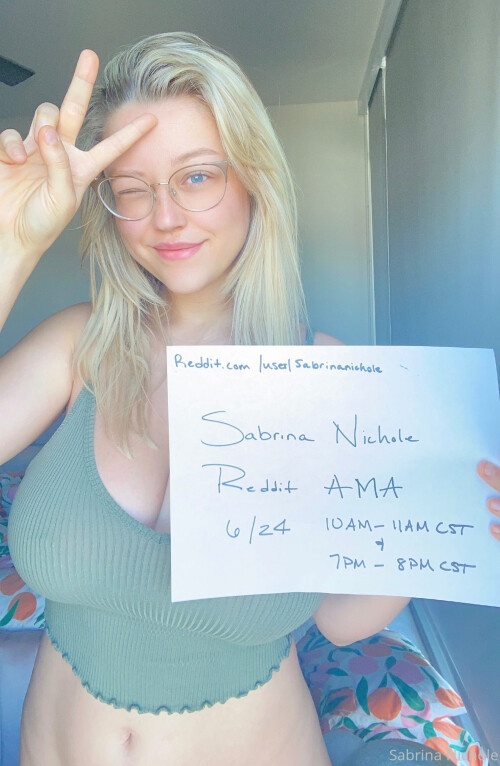 Reddit.com/user/Sabrinanichole
Sabrina Nichole
Reddit AMA
6/24 10AM - 11AM CST
&
7PM - 8PM CST
Sabrina Nichole